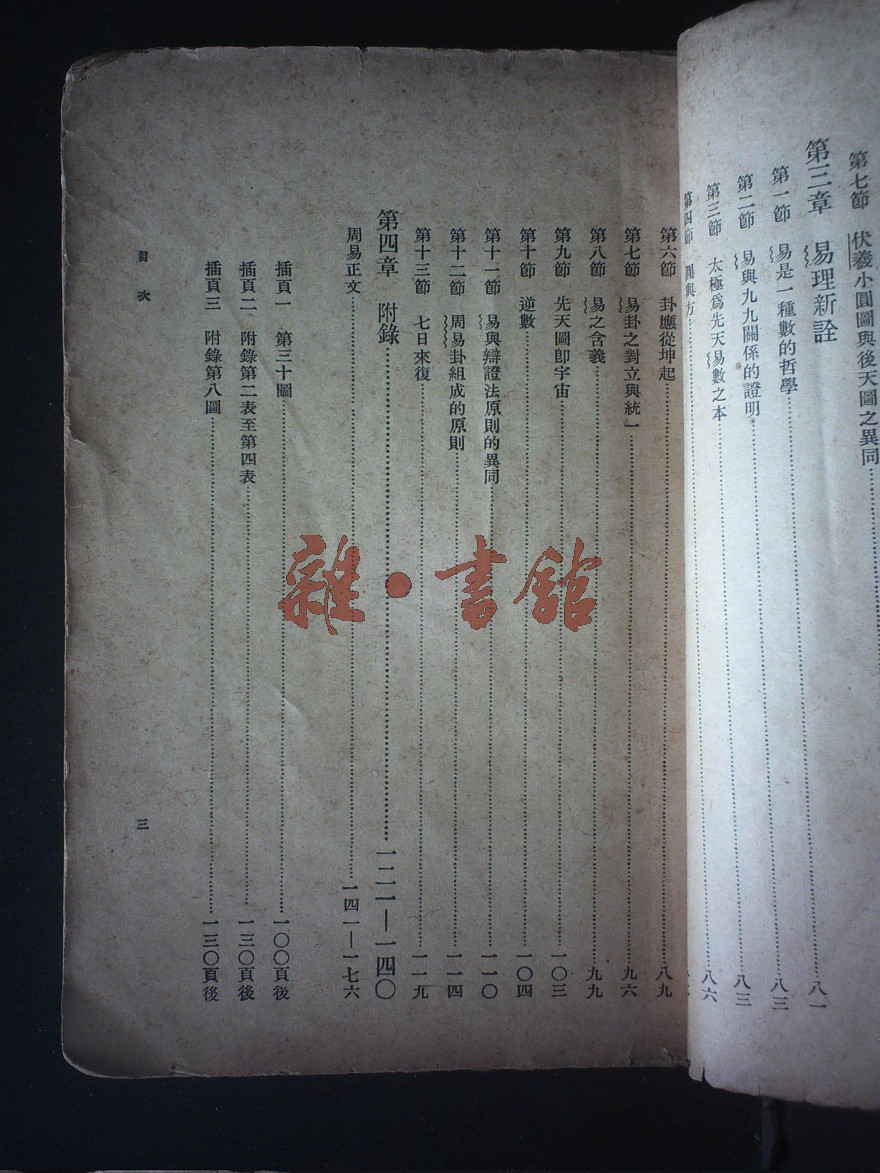 第七節 伏羲小圓圖與後天圖之異同
第三章 易理新詮……八一
第一節 易是一種數的哲學……八三
第二節 易與九九關係的證明……八三
第三節 太極爲先天易數之本……八六
第四節 圓與方……
第六節 卦應從坤起……八九
第七節 易卦之對立與統一……九六
第八節 易之含義……九九
第九節 先天圖卽宇宙……一〇三
第十節 逆數……一〇四
第十一節 易與辯證法原則的異同……一一〇
第十二節 周易卦組成的原則……一一四
第十三節 七日來復……一一九
第四章 附錄……一二一—一四〇
周易正文……一四一—一七六
插頁一 第三十圖……一〇〇頁後
插頁二 附錄第二表至第四表……一三〇頁後
插頁三 附錄第八圖……一三〇頁後
目次
三
雜·書館